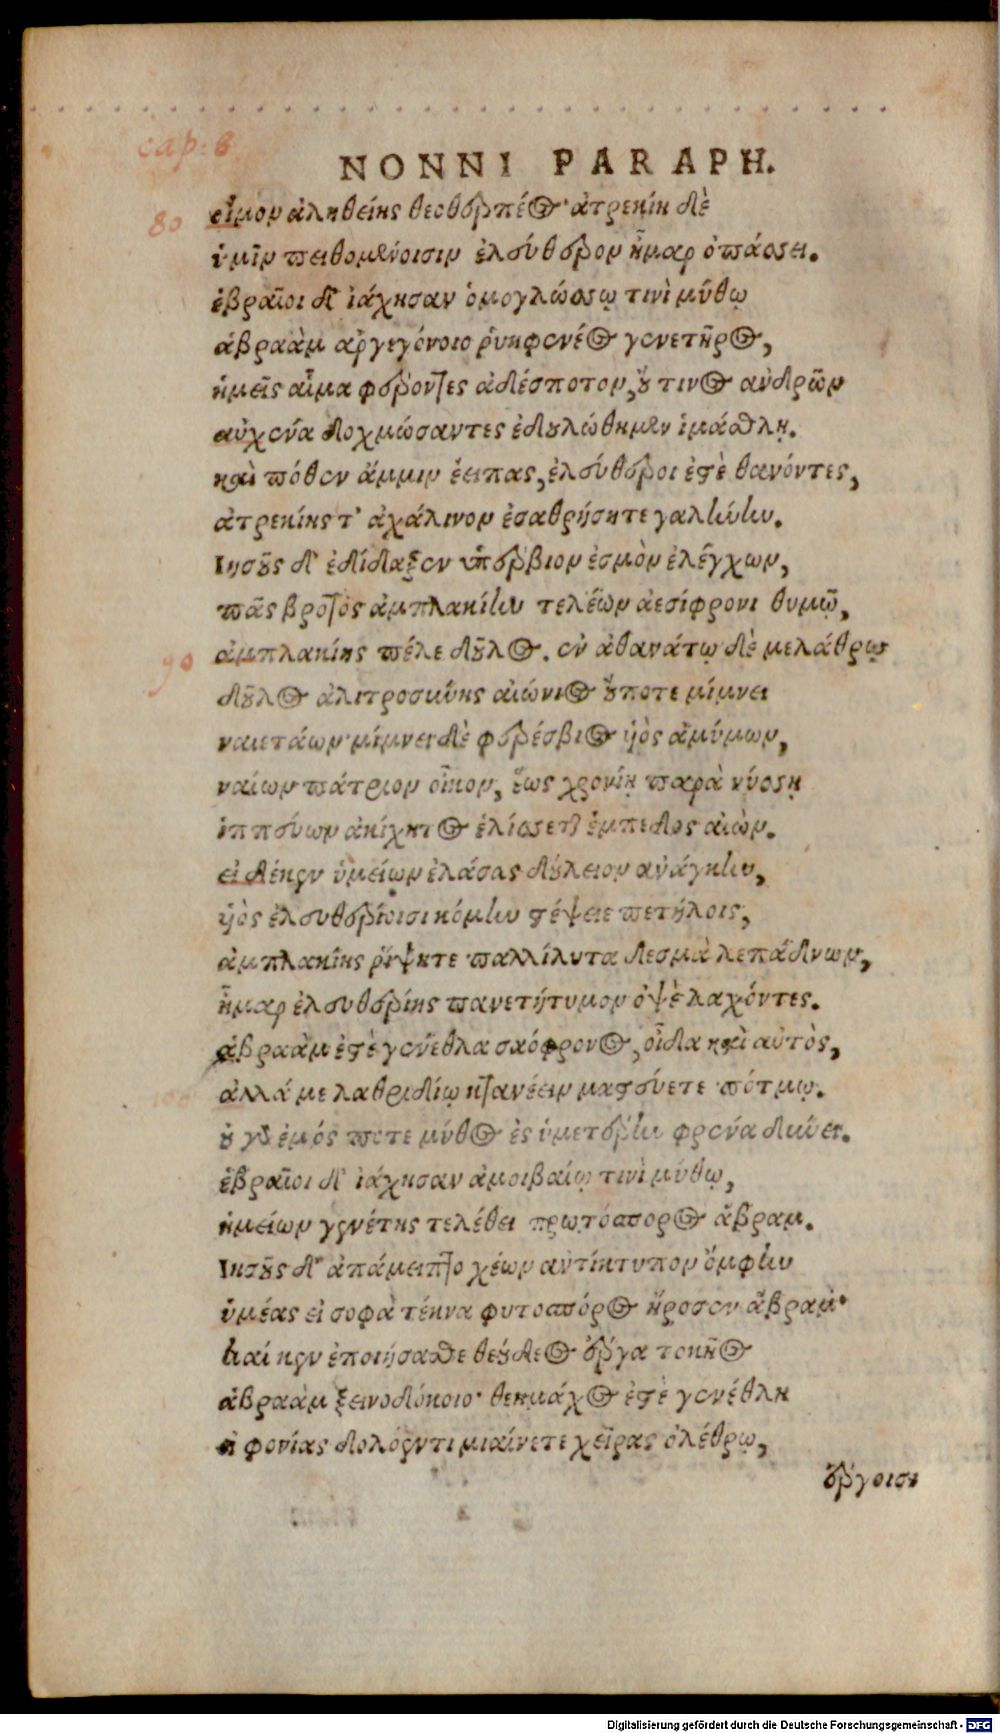 cap: 8
NONNI PARAPH.
80 οἶμον ἀληθείης θεοδερπέος· ἀτρεκίη δὲ
ὑμῖν πειθομένοισιν ἐλεύθερον ἦμαρ ὀπάσσει.
ἑβραῖοι δ' ἰάχησαν ὁμογλώσσῳ τινὶ μύθῳ
ἀβραὰμ ἀρχεγόνοιο ῥυηφενέος γενετῆρος,
ἡμεῖς αἷμα φέροντες ἀδέσποτον, οὔ τινος ἀνδρῶν
αὐχένα δοχμώσαντες ἐδουλώθημεν ἱμάσθλῃ.
καὶ πόθεν ἄμμιν ἔειπας, ἐλεύθεροι ἐστὲ θανόντες,
ἀτρεκίης τ' ἀχάλινον ἐσαθρήσητε γαλήνην.
Ιησοῦς δ' ἐδίδαξεν ὑπέρβιον ἐσμὸν ἐλέγχων,
πᾶς βροτὸς ἀμπλακίην τελέων ἀεσίφρονι θυμῷ,
90 ἀμπλακίης πέλε δοῦλος. ἐν ἀθανάτῳ δὲ μελάθρῳ
δοῦλος ἀλιτροσύνης αἰώνιος οὔποτε μίμνει
ναιετάων· μίμνει δὲ φερέσβιος υἱὸς ἀμύμων,
ναίων πάτριον οἶκον, ἕως χρονίη παρὰ νύσσῃ
ἱππεύων ἀκίχητος ἑλίσσεται ἔμπεδος αἰών.
εἰ δέ κεν ὑμείων ἐλάσας δούλειον ἀνάγκην,
υἱὸς ἐλευθερίοισι κόμην στέψειε πετήλοις,
ἀμπλακίης ῥίψητε παλλίλυτα δεσμὰ λεπάδνων,
ἦμαρ ἐλευθερίης πανετήτυμον ὀψὲ λαχόντες.
ἀβραὰμ ἐστὲ γένεθλα σαόφρονος, οἶδα καὶ αὐτὸς,
ἀλλά με λαθριδίῳ κτανέειν μαστεύετε πότμῳ.
οὐ γὰρ ἐμός ποτε μῦθος ἐς ὑμετέρην φρένα δύνει.
ἑβραῖοι δ' ἰάχησαν ἀμοιβαίῳ τινὶ μύθῳ,
ἡμείων γενέτης τελέθει πρωτόσπορος ἄβραμ.
Ιησοῦς δ' ἀπάμειπτο χέων ἀντίκτυπον ὀμφὴν
ὑμέας εἰ σοφὰ τέκνα φυτοσπόρος ἤροσεν ἄβραμ·
καί κεν ἐποιήσασθε θεουδέος ἔργα τοκῆος
ἀβραὰμ ξεινοδόκοιο· θεημάχος ἐστὲ γενέθλη
ἣ φονίας δολόεντι μιαίνετε χεῖρας ὀλέθρῳ,
ἔργοισι
Digitalisierung gefördert durch die Deutsche Forschungsgemeinschaft - DFG